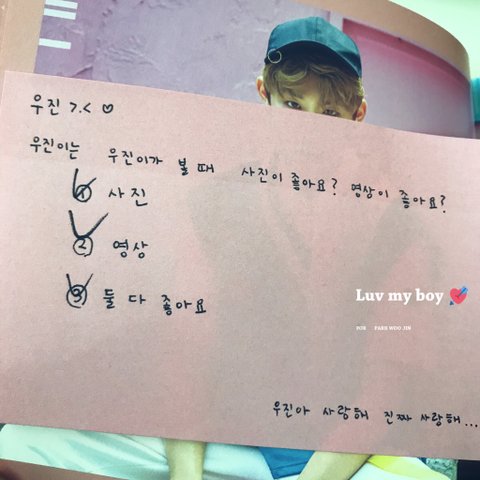 우진 >.< ♡
우진이는 우진이가 볼 때 사진이 좋아요? 영상이 좋아요?
① 사진
② 영상
③ 둘 다 좋아요
Luv my boy 💘
FOR PARK WOO JIN
우진아 사랑해 진짜 사랑해...